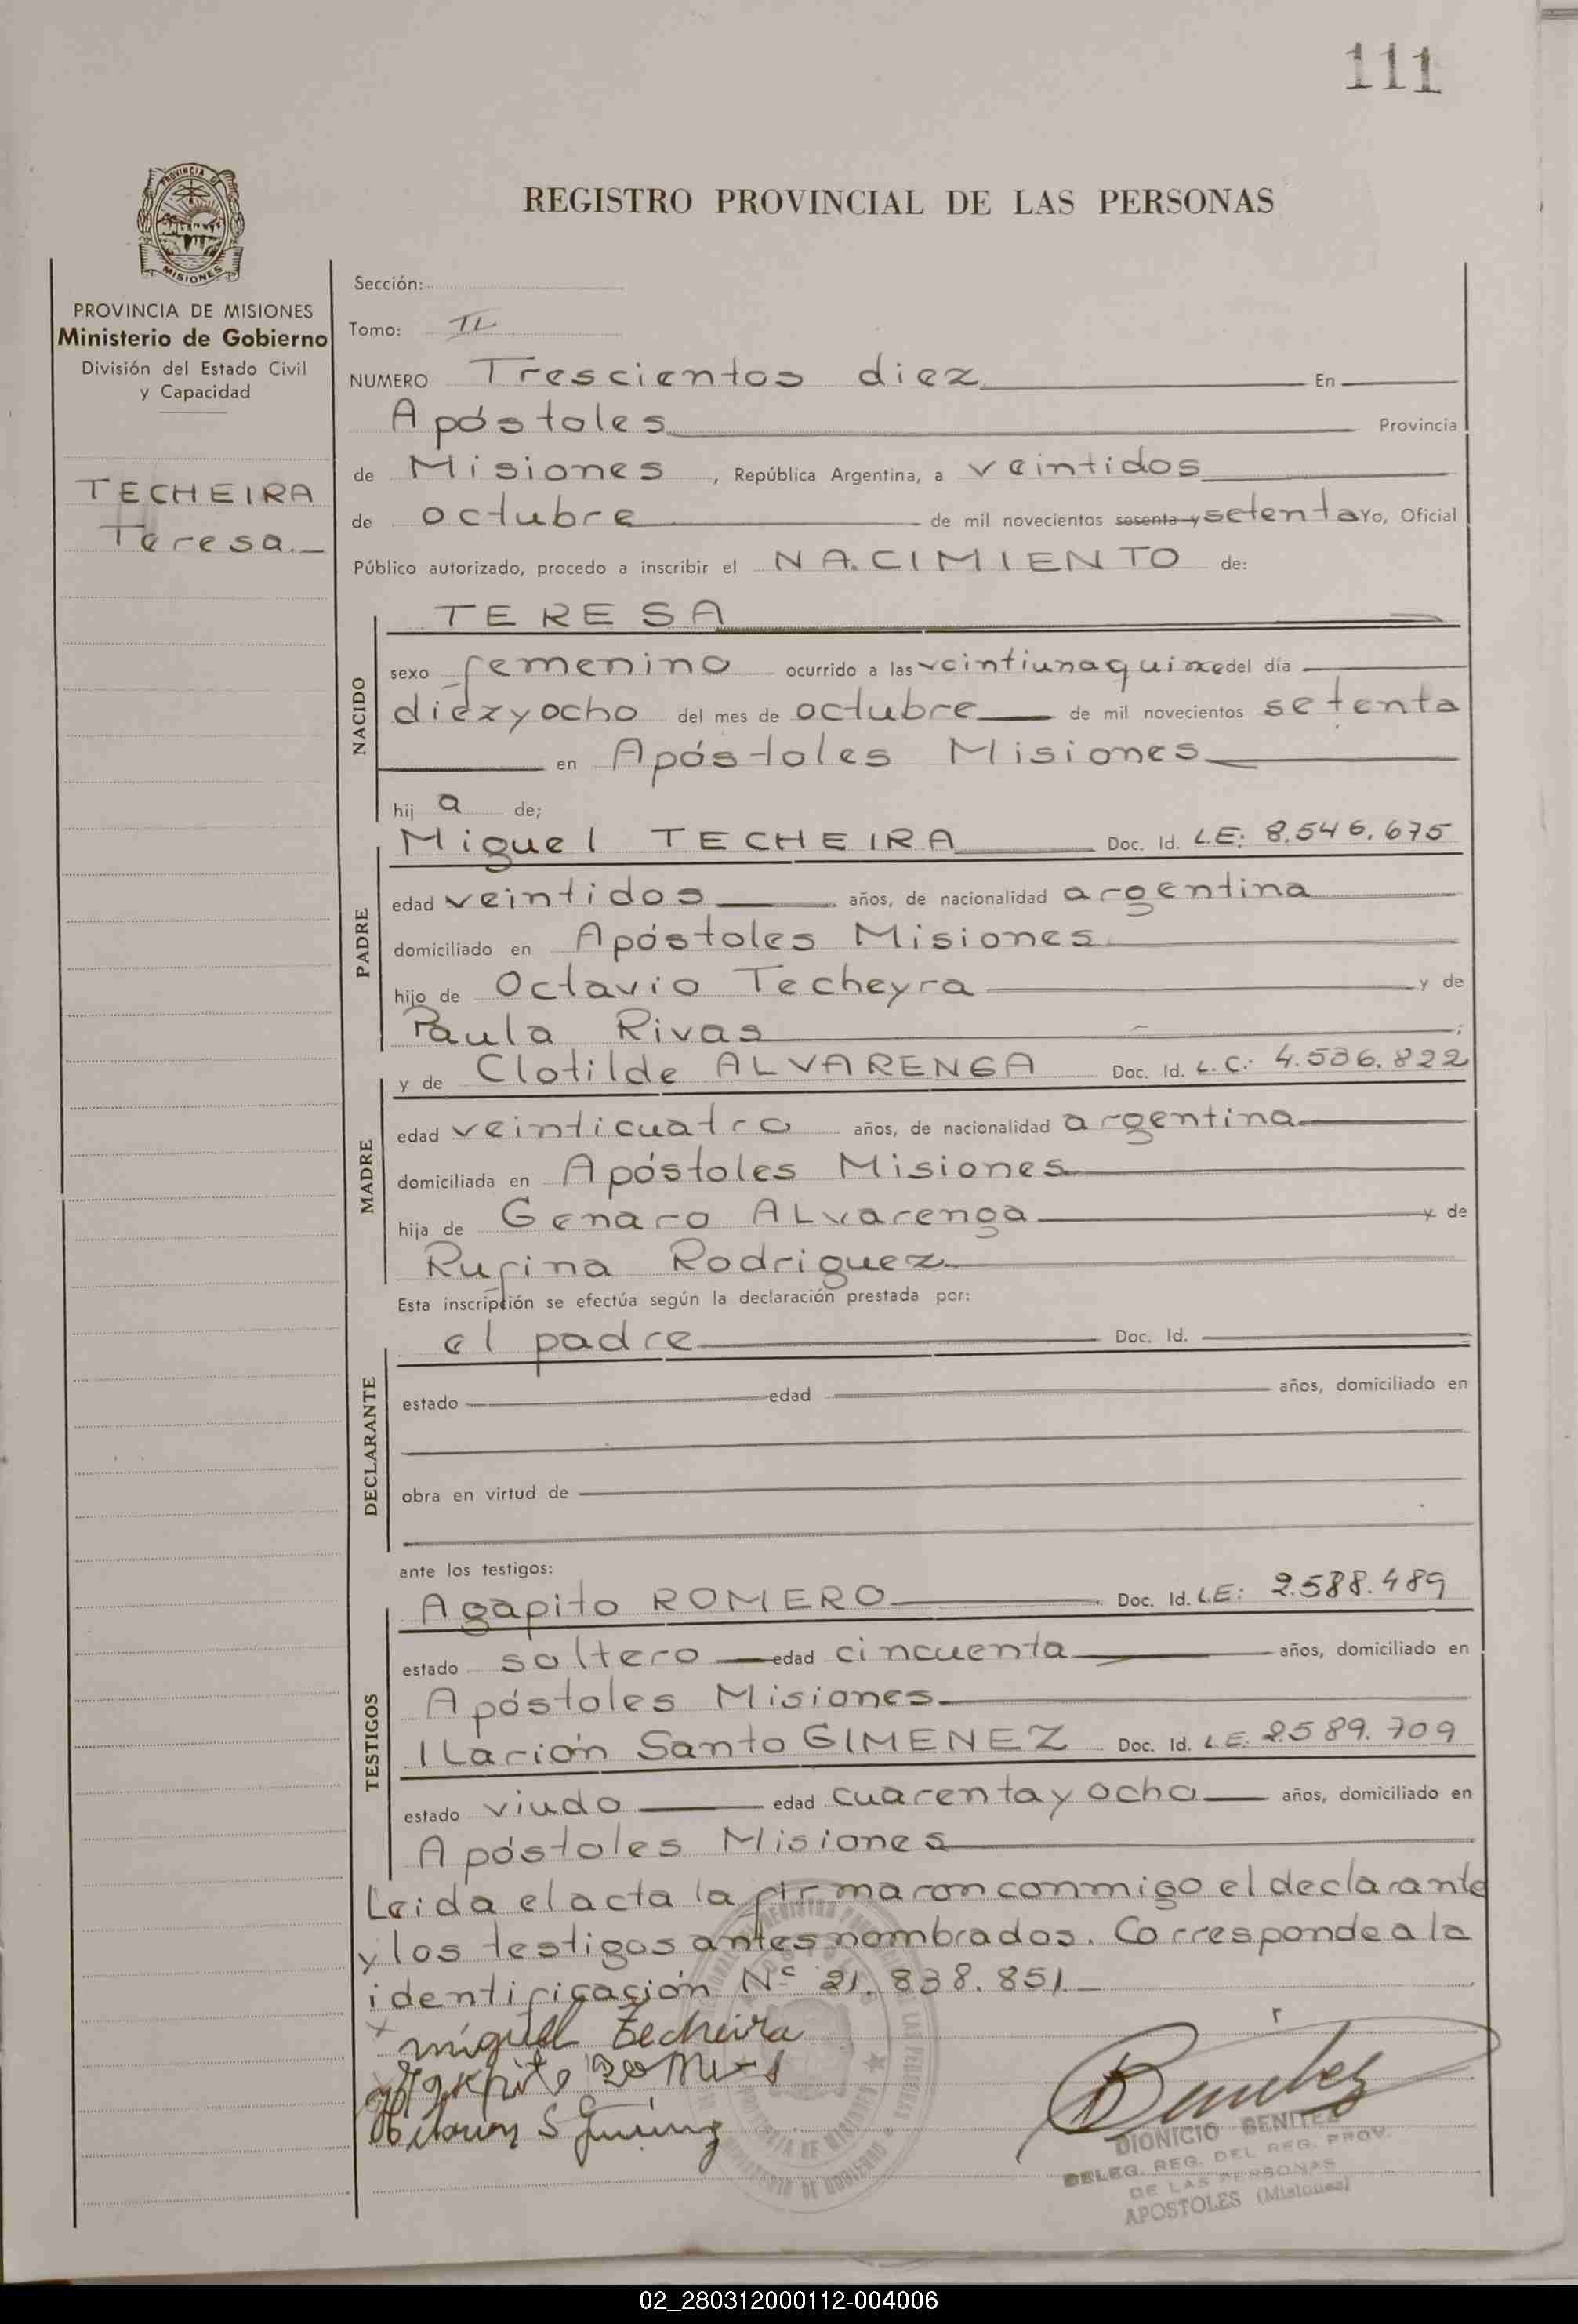 111
REGISTRO PROVINCIAL DE LAS PERSONAS
PROVINCIA DE MISIONES
PROVINCIA DE MISIONES
Ministerio de Gobierno
División del Estado Civil
y Capacidad
TECHEIRA
Teresa.
Sección:
Tomo:
NUMERO Trescientos diez En
Apóstoles Provincia
de Misiones, República Argentina, a veintidos
de octubre de mil novecientos sesenta y setenta Yo, Oficial
Público autorizado, procedo a inscribir el NACIMIENTO de:
NACIDO
TERESA
sexo femenino ocurrido a las veintiuna quince del día
diezyocho del mes de octubre de mil novecientos setenta
en Apóstoles Misiones
hij a de;
PADRE
Miguel TECHEIRA Doc. Id. L.E: 8.546.675
edad veintidos años, de nacionalidad argentina
domiciliado en Apóstoles Misiones
hijo de Octavio Techeyra y de
Paula Rivas ;
MADRE
y de Clotilde ALVARENGA Doc. Id. L.C: 4.536.822
edad veinticuatro años, de nacionalidad argentina
domiciliada en Apóstoles Misiones
hija de Genaro ALvarenga y de
Rufina Rodriguez
Esta inscripción se efectúa según la declaración prestada por:
DECLARANTE
el padre Doc. Id.
estado edad años, domiciliado en
obra en virtud de
ante los testigos:
TESTIGOS
Agapito ROMERO Doc. Id. L.E: 2.588.489
estado soltero edad cincuenta años, domiciliado en
Apóstoles Misiones
ILarión Santo GIMENEZ Doc. Id. L.E. 2.589.709
estado viudo edad cuarentayocho años, domiciliado en
Apóstoles Misiones
Leida el acta la firmaron conmigo el declarante
y los testigos antes nombrados. Corresponde a la
identificación Nº 21.838.851.
miguel Techeira
Benitez
DIONICIO BENITEZ
DELEG. REG. DEL REG. PROV.
DE LAS PERSONAS
APOSTOLES (Misiones)
02_280312000112-004006